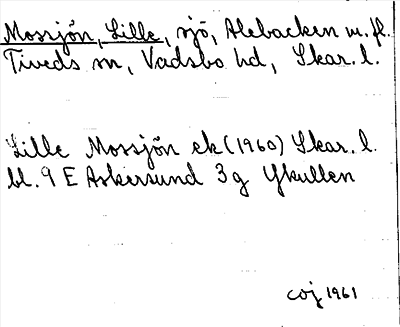 Mossjön, Lille, sjö, Alebacken m. fl.
Tiveds sn, Vadsbo hd, Skar. l.
Lille Mossjön ek (1960) Skar. l.
bl. 9 E Askersund 3g Ykullen
coj 1961